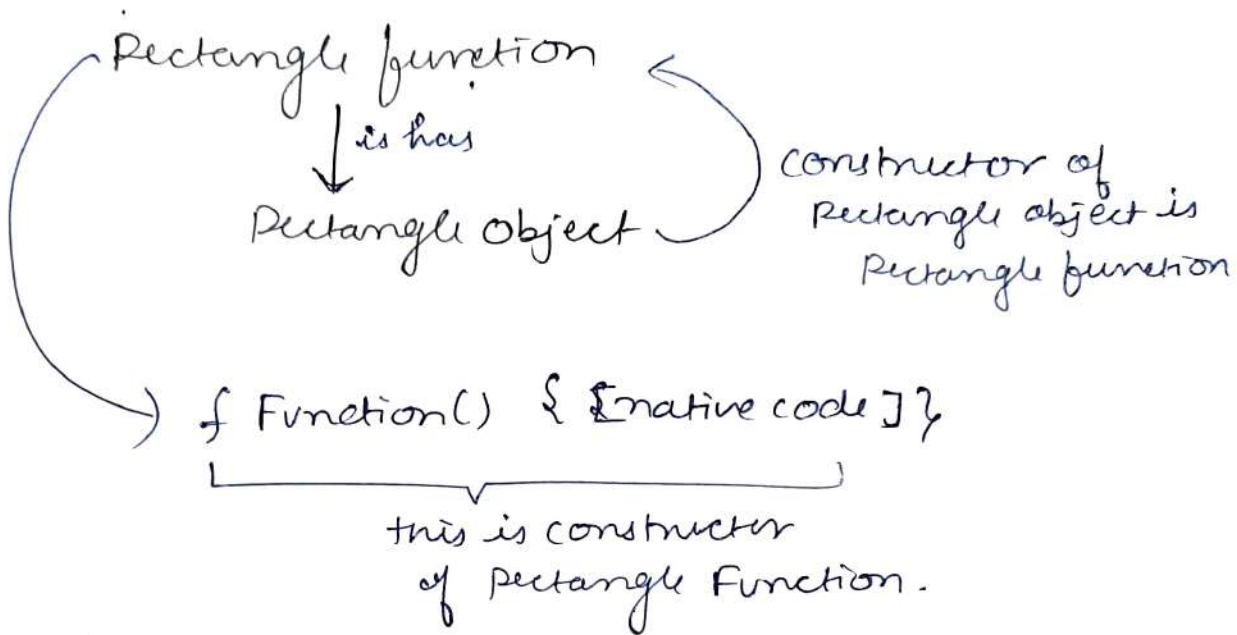 Rectangle function
is has
Rectangle Object
constructor of
Rectangle object is
Rectangle function
f Function() { [native code] }
this is constructer
of Rectangle Function.